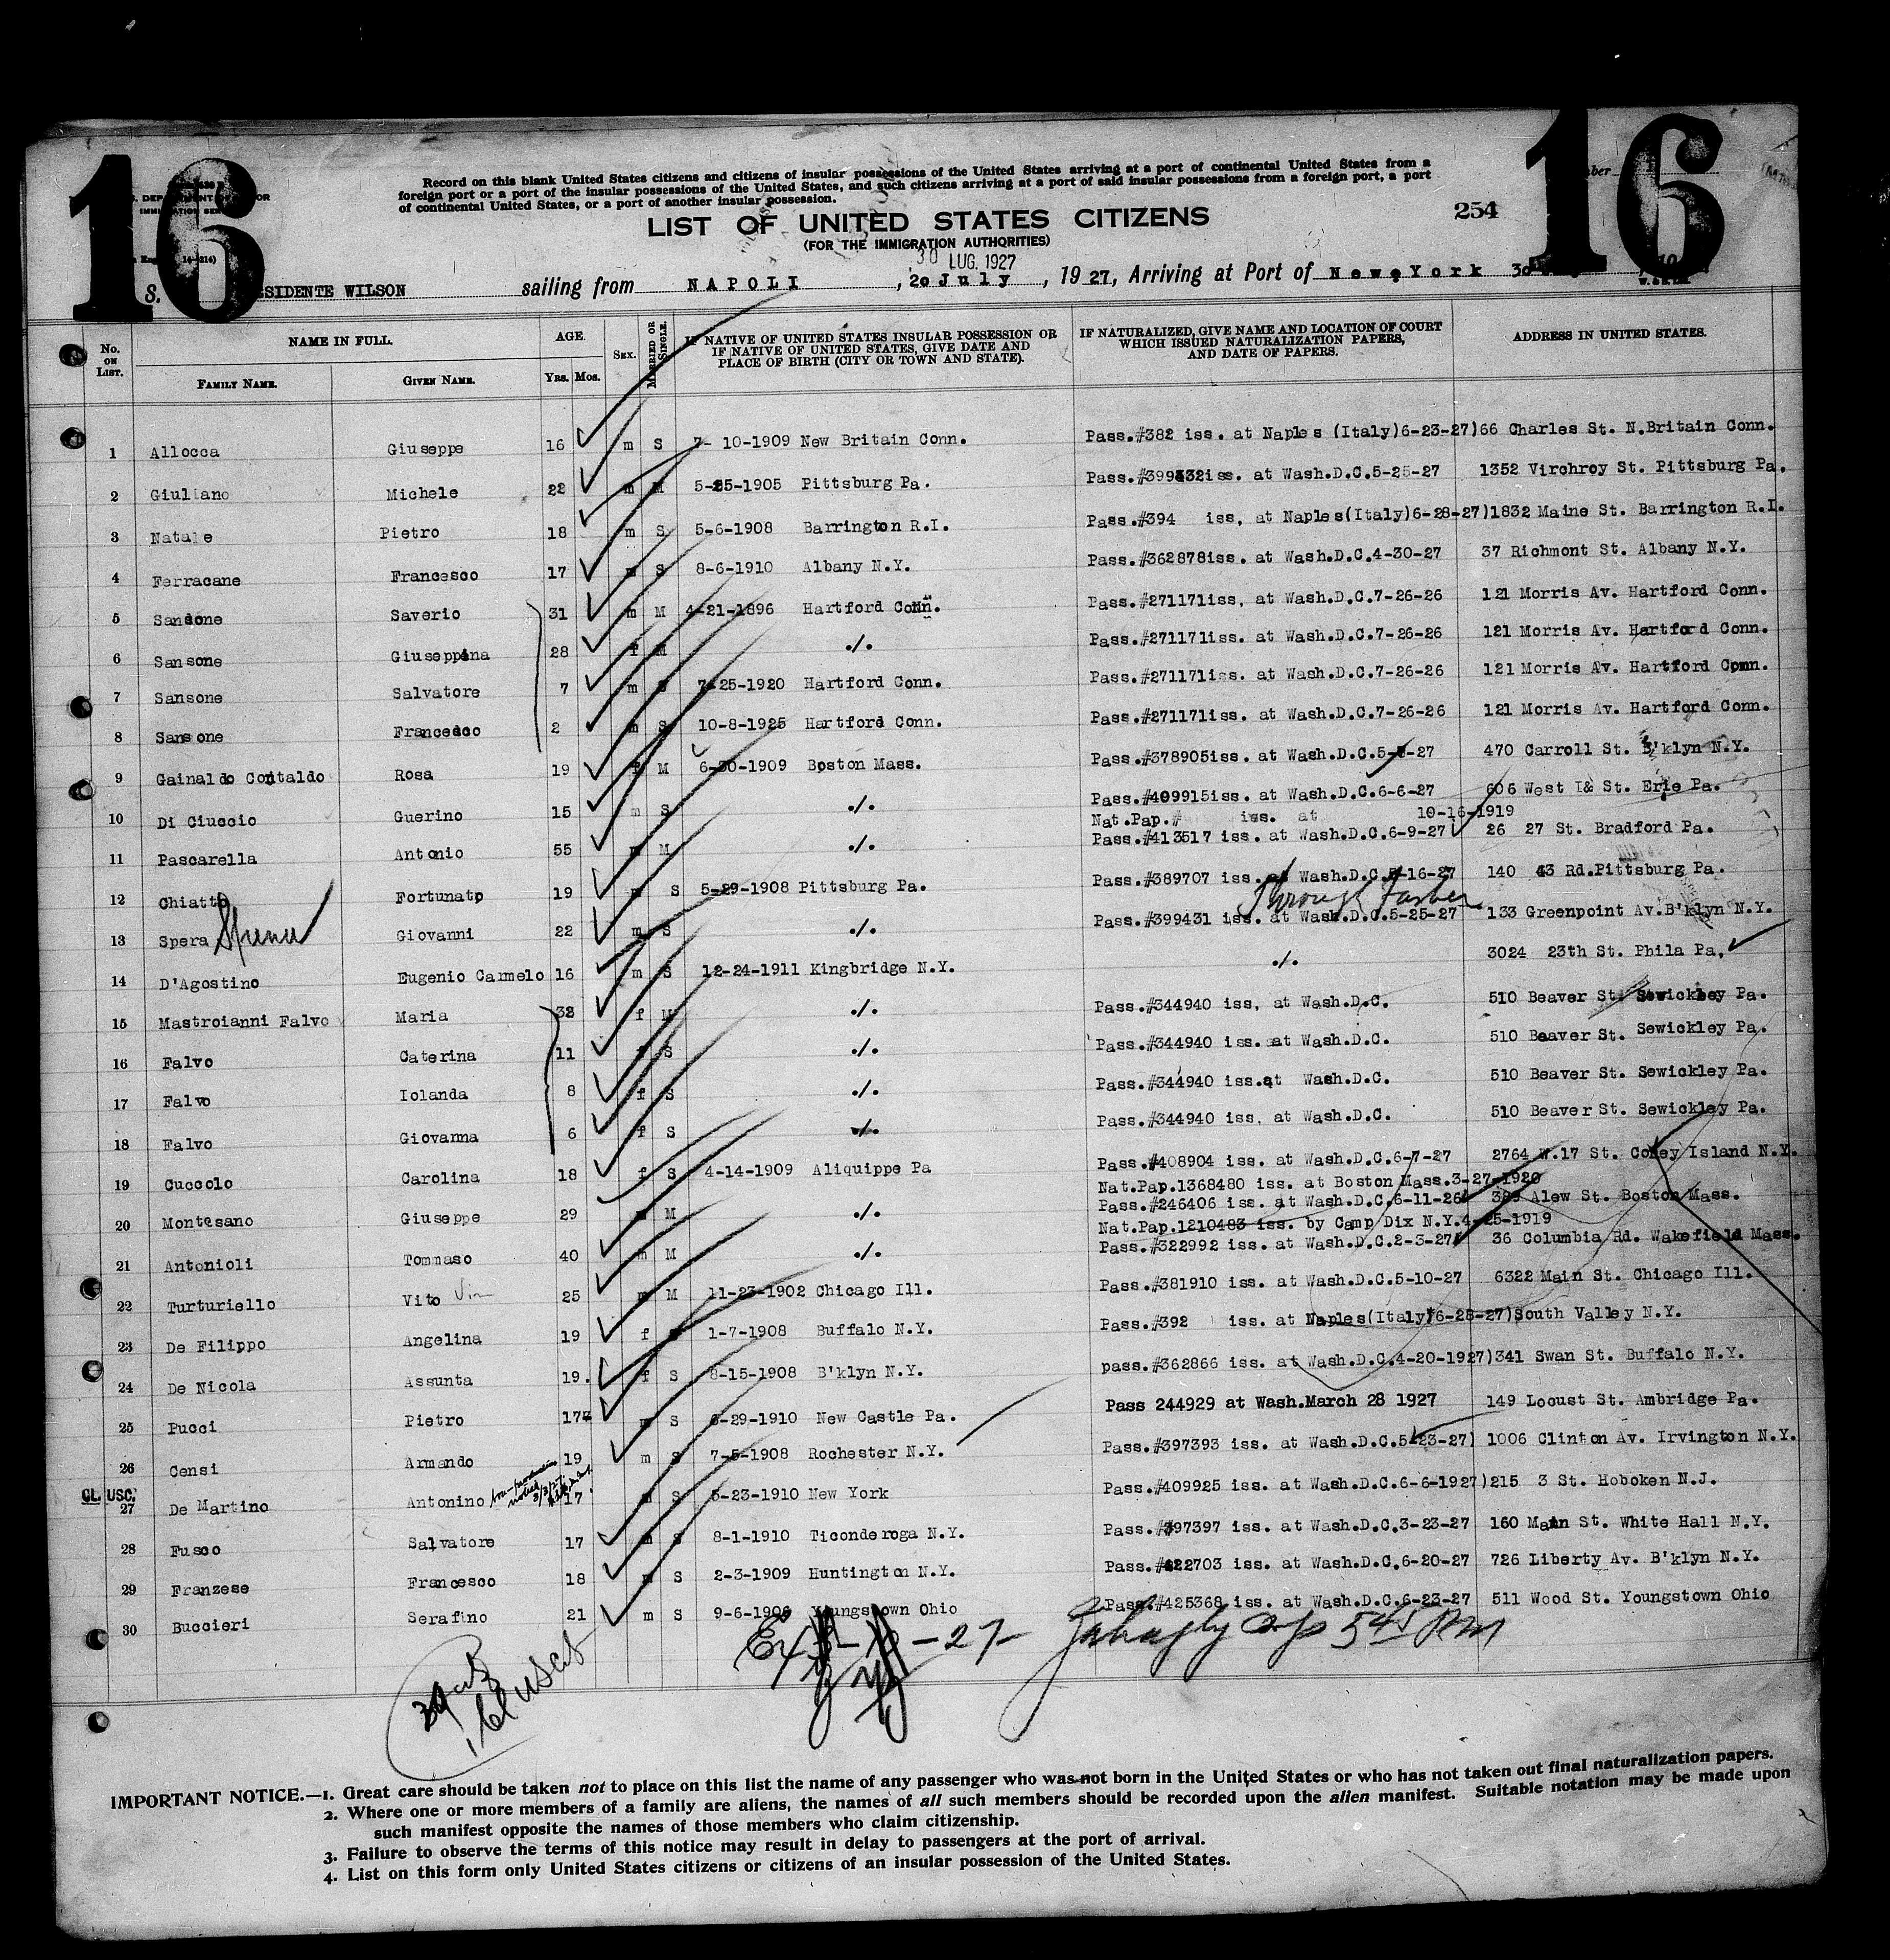 16
16
Record on this blank United States citizens and citizens of insular possessions of the United States arriving at a port of continental United States from a
foreign port or a port of the insular possessions of the United States, and such citizens arriving at a port of said insular possessions from a foreign port, a port
of continental United States, or a port of another insular possession.
LIST OF UNITED STATES CITIZENS
254
(FOR THE IMMIGRATION AUTHORITIES)
30 LUG. 1927
S. SIDENTE WILSON sailing from NAPOLI, 20 July, 1927, Arriving at Port of New York
No. ON LIST. NAME IN FULL. AGE. SEX. MARRIED OR SINGLE. IF NATIVE OF UNITED STATES INSULAR POSSESSION OR IF NATIVE OF UNITED STATES, GIVE DATE AND PLACE OF BIRTH (CITY OR TOWN AND STATE). IF NATURALIZED, GIVE NAME AND LOCATION OF COURT WHICH ISSUED NATURALIZATION PAPERS, AND DATE OF PAPERS. ADDRESS IN UNITED STATES.
FAMILY NAME. GIVEN NAME. YRS. MOS.
1 Allocca Giuseppe 16 m S 7-10-1909 New Britain Conn. Pass.#382 iss. at Naples (Italy)6-23-27)66 Charles St. N.Britain Conn.
2 Giuliano Michele 22 m M 5-25-1905 Pittsburg Pa. iss. at Wash.D.C.5-25-27 1352 Virchroy St. Pittsburg Pa.
3 Natale Pietro 18 m S 5-6-1908 Barrington R.I. Pass.#394 iss, at Naples(Italy)6-28-27)1832 Maine St. Barrington R.I.
4 Ferracane Francesco 17 m S 8-6-1910 Albany N.Y. Pass.#362878iss. at Wash.D.C.4-30-27 37 Richmont St. Albany N.Y.
5 Sansone Saverio 31 m M 4-21-1896 Hartford Conn. Pass.#271171iss, at Wash.D.C.7-26-26 121 Morris Av. Hartford Conn.
6 Sansone Giuseppina 28 f M ./. Pass.#271171iss. at Wash.D.C.7-26-26 121 Morris Av. Hartford Conn.
7 Sansone Salvatore 7 m S 7-25-1920 Hartford Conn. Pass.#271171iss. at Wash.D.C.7-26-26 121 Morris Av. Hartford Conn.
8 Sansone Francesco 2 m S 10-8-1925 Hartford Conn. Pass.#271171iss. at Wash.D.C.7-26-26 121 Morris Av. Hartford Conn.
9 Gainaldo Contaldo Rosa 19 f M 6-30-1909 Boston Mass. Pass.#378905iss. at Wash.D.C. 470 Carroll St. B'klyn N.Y.
10 Di Ciuccio Guerino 15 m S ./. Pass.#409915iss. at Wash.D.C.6-6-27 606 West I& St. Erie Pa.
Nat.Pap.# iss. at 10-16-1919
11 Pascarella Antonio 55 m M ./. Pass.#413517 iss. at Wash.D.C.6-9-27 26 27 St. Bradford Pa.
12 Chiatto Fortunato 19 m S 5-29-1908 Pittsburg Pa. Pass.#389707 iss. at Wash.D.C.5-16-27 140 43 Rd.Pittsburg Pa.
Through Father
13 Spera Giovanni 22 m S ./. Pass.#399431 iss. at Wash.D.C.5-25-27 133 Greenpoint Av.B'klyn N.Y.
14 D'Agostino Eugenio Carmelo 16 m S 12-24-1911 Kingbridge N.Y. ./. 3024 23th St. Phila Pa.
15 Mastroianni Falvo Maria 38 f M ./. Pass.#344940 iss, at Wash.D.C. 510 Beaver St. Sewickley Pa.
16 Falvo Caterina 11 f S ./. Pass.#344940 iss. at Wash.D.C. 510 Beaver St. Sewickley Pa.
17 Falvo Iolanda 8 f S ./. Pass.#344940 iss.at Wash.D.C. 510 Beaver St. Sewickley Pa.
18 Falvo Giovanna 6 f S ./. Pass.#344940 iss, at Wash.D.C. 510 Beaver St. Sewickley Pa.
19 Cuccolo Carolina 18 f S 4-14-1909 Aliquippe Pa Pass.#408904 iss. at Wash.D.C.6-7-27 2764 W.17 St. Coney Island N.Y.
Nat.Pap.1368480 iss. at Boston Mass.3-27-1920
20 Montesano Giuseppe 29 m M ./. Pass.#246406 iss. at Wash.D.C.6-11-26 389 Alew St. Boston Mass.
Nat.Pap.1210483 iss. by Camp Dix N.Y.4-25-1919
21 Antonioli Tommaso 40 m M ./. Pass.#322992 iss. at Wash.D.C.2-3-27 36 Columbia Rd. Wakefield Mass.
22 Turturiello Vito 25 m M 11-23-1902 Chicago Ill. Pass.#381910 iss. at Wash.D.C.5-10-27 6322 Main St. Chicago Ill.
23 De Filippo Angelina 19 f 1-7-1908 Buffalo N.Y. Pass.#392 iss. at Naples(Italy)6-28-27)South Valley N.Y.
24 De Nicola Assunta 19. f S 8-15-1908 B'klyn N.Y. pass.#362866 iss. at Wash.D.C.4-20-1927)341 Swan St. Buffalo N.Y.
25 Pucci Pietro 17 m S 6-29-1910 New Castle Pa. Pass 244929 at Wash.March 28 1927 149 Locust St. Ambridge Pa.
26 Censi Armando 19 m S 7-5-1908 Rochester N.Y. Pass.#397393 iss. at Wash.D.C.5-23-27) 1006 Clinton Av. Irvington N.Y.
CL. USC.
27 De Martino Antonino 17 m S 5-23-1910 New York Pass.#409925 iss. at Wash.D.C.6-6-1927)215 3 St. Hoboken N.J.
28 Fusco Salvatore 17 m S 8-1-1910 Ticonderoga N.Y. Pass.#397397 iss. at Wash.D.C.3-23-27 160 Main St. White Hall N.Y.
29 Franzese Francesco 18 m S 2-3-1909 Huntington N.Y. Pass.#422703 iss. at Wash.D.C.6-20-27 726 Liberty Av. B'klyn N.Y.
30 Buccieri Serafino 21 m S 9-6-1906 Youngstown Ohio Pass.#425368 iss. at Wash.D.C.6-23-27 511 Wood St. Youngstown Ohio
IMPORTANT NOTICE.—1. Great care should be taken not to place on this list the name of any passenger who was not born in the United States or who has not taken out final naturalization papers.
2. Where one or more members of a family are aliens, the names of all such members should be recorded upon the alien manifest. Suitable notation may be made upon
such manifest opposite the names of those members who claim citizenship.
3. Failure to observe the terms of this notice may result in delay to passengers at the port of arrival.
4. List on this form only United States citizens or citizens of an insular possession of the United States.